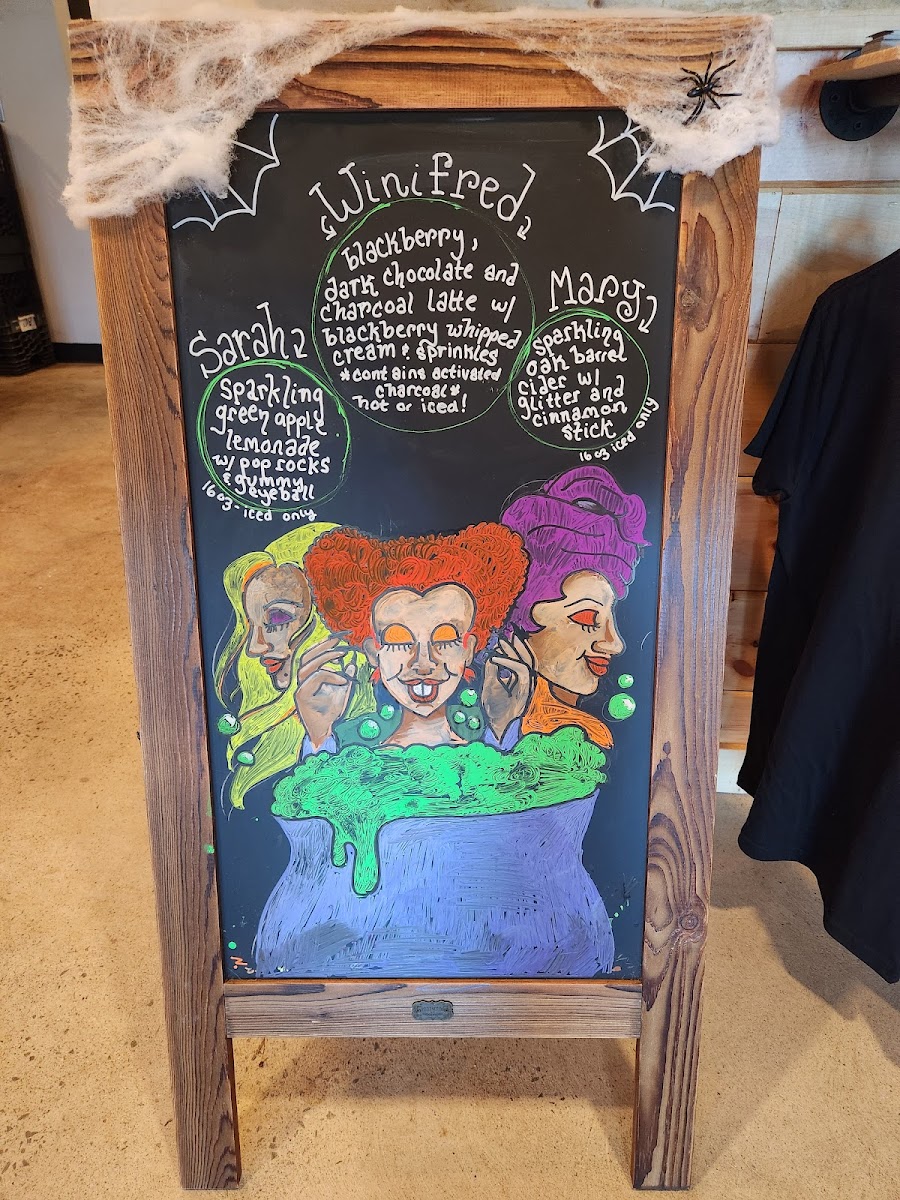 Winifred
blackberry,
dark chocolate and
charcoal latte w/
blackberry whipped
cream & sprinkles
*contains activated
charcoal*
hot or iced!
Sarah
sparkling
green apple
lemonade
w/ pop rocks
& gummy
eyeball
16 oz - iced only
Mary
sparkling
oak barrel
cider w/
glitter and
cinnamon
stick
16 oz iced only